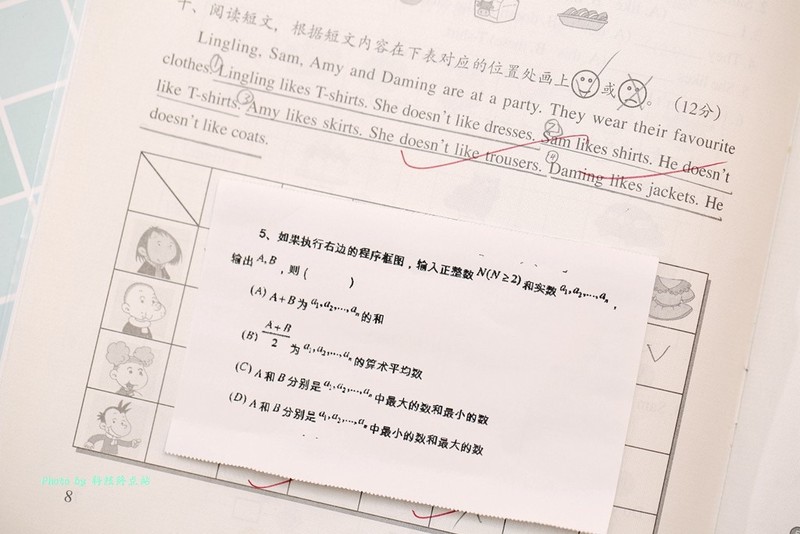 十、阅读短文，根据短文内容在下表对应的位置处画上 或 。 （12分）
Lingling, Sam, Amy and Daming are at a party. They wear their favourite
clothes. ①Lingling likes T-shirts. She doesn't like dresses. ②Sam likes shirts. He doesn't
like T-shirts. ③Amy likes skirts. She doesn't like trousers. ④Daming likes jackets. He
doesn't like coats.
5、如果执行右边的程序框图，输入正整数 N(N≥2) 和实数 a₁,a₂,...,aₙ，
输出 A,B，则（ ）
(A) A+B 为 a₁,a₂,...,aₙ 的和
(B) A+B/2 为 a₁,a₂,...,aₙ 的算术平均数
(C) A 和 B 分别是 a₁,a₂,...,aₙ 中最大的数和最小的数
(D) A 和 B 分别是 a₁,a₂,...,aₙ 中最小的数和最大的数
Photo by
8